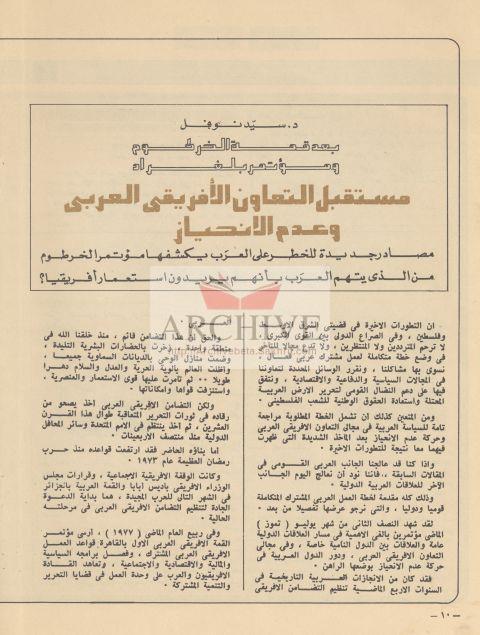 د. سيد نوفل
بعد قمة الخرطوم
ومؤتمر بلغراد
مستقبل التعاون الأفريقى العربى
وعدم الانحياز
مصادر جديدة للخطر على العرب يكشفها مؤتمر الخرطوم
من الذى يتهم العرب بأنهم يريدون استعمار أفريقيا؟
ARCHIVE
ان التطورات الاخيرة فى قضيتى الشرق الاوسط
وفلسطين ، وفى الصراع الدولى بين القوى الكبرى ،
لا ترحم المترددين ولا المنتظرين ، ولا تدع مجالا للتأخر
فى وضع خطة متكاملة لعمل مشترك عربى فعال ،
نسوى بها مشاكلنا ، ونقرر الوسائل المعدة لتعاوننا
فى المجالات السياسية والدفاعية والاقتصادية ، ونتفق
فيها عن دعم النضال القومى لتحرير الارض العربية
المحتلة واستعادة الحقوق الوطنية للشعب الفلسطينى .
ومن المتعين كذلك ان تشمل الخطة المطلوبة مراجعة
تامة للسياسة العربية فى مجالى التعاون الافريقى العربى
وحركة عدم الانحياز بعد المآخذ الشديدة التى ظهرت
فيهما معا نتيجة للتطورات الاخيرة .
واذا كنا قد عالجنا الجانب العربى القومى فى
المقالات السابقة .. فاننا نود أن نعالج اليوم الجانب
الآخر للعلاقات العربية الدولية .
وذلك كله مقدمة لخطة العمل العربى المشترك المتكاملة
قوميا ودوليا ، والتى نرجو عرضها تفصيلا من بعد .
لقد شهد النصف الثانى من شهر يوليو ( تموز )
الماضى مؤتمرين بالغى الاهمية فى مسار العلاقات الدولية
عامة والعلاقات بين الدول النامية خاصة ، وفى مجالى
التعاون الافريقى العربى ، ودور الدول العربية فى
حركة عدم الانحياز بوضعها الراهن .
فقد كان من الانجازات العربية التاريخية فى
السنوات الاربع الماضية تنظيم التضامن الافريقى
العربى
والحق ان هذا التضامن قائم ، منذ خلقنا الله فى
منطقة واحدة ، زخرت بالحضارات البشرية التليدة ،
وضمت منازل الوحى بالديانات السماوية جميعها ،
وأظلت العالم بألوية العربة والعدل والسلام دهرا
طويلا .. ثم تآمرت عليها قوى الاستعمار والعنصرية .
واستنزفت قواها وامكاناتها .
ولكن التضامن الافريقى العربى اخذ يصحو من
رقاده فى ثورات التحرير المتعاقبة طوال هذا القرن
العشرين ، ثم اخذ ينتظم فى الامم المتحدة وسائر المحافل
الدولية منذ منتصف الاربعينات .
اما بناؤه الحاضر فقد ارتفعت قواعده منذ حرب
رمضان العظيمة عام ١٩٧٣ .
وكانت الوقفة الافريقية الاجماعية ، وقرارات مجلس
الوزراء الافريقى باديس أبابا والقمة العربية بالجزائر
فى الشهر التالى للحرب المجيدة ، هما بداية الدعوة
الجادة لتنظيم التضامن الافريقى العربى فى مرحلته
الحالية .
وفى ربيع العام الماضى ( ١٩٧٧ ) ، ارسى مؤتمر
القمة الافريقى العربى الاول بالقاهرة قواعد العمل
الافريقى العربى المشترك ، وفصل برامجه السياسية
والمالية والاقتصادية والاجتماعية ، وتعاهد القادة
الافريقيون والعرب على وحدة العمل فى قضايا التحرير
والتنمية المشتركة .
— ١٠ —